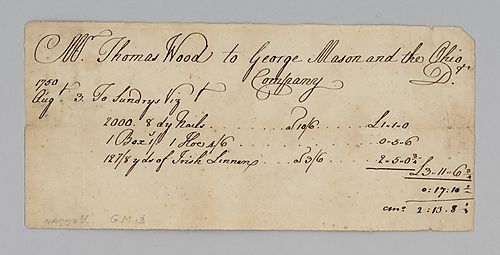 Mr Thomas Wood to George Mason and the Ohio
Company Dr
1750
Augt 3. To Sundrys Viz t
2000. 8 dy Nails ........ P 10/6 ........ £1-1-0
1 Box 1/ 1 Hoe 4/6 ........ 0-5-6
12 7/8 yds of Irish Linnen ... P 3/6 ..... 2-5-0 3/4
£3-11-6 3/4
0:17:10 1/2
2:13.8 1/4
G.M. 13